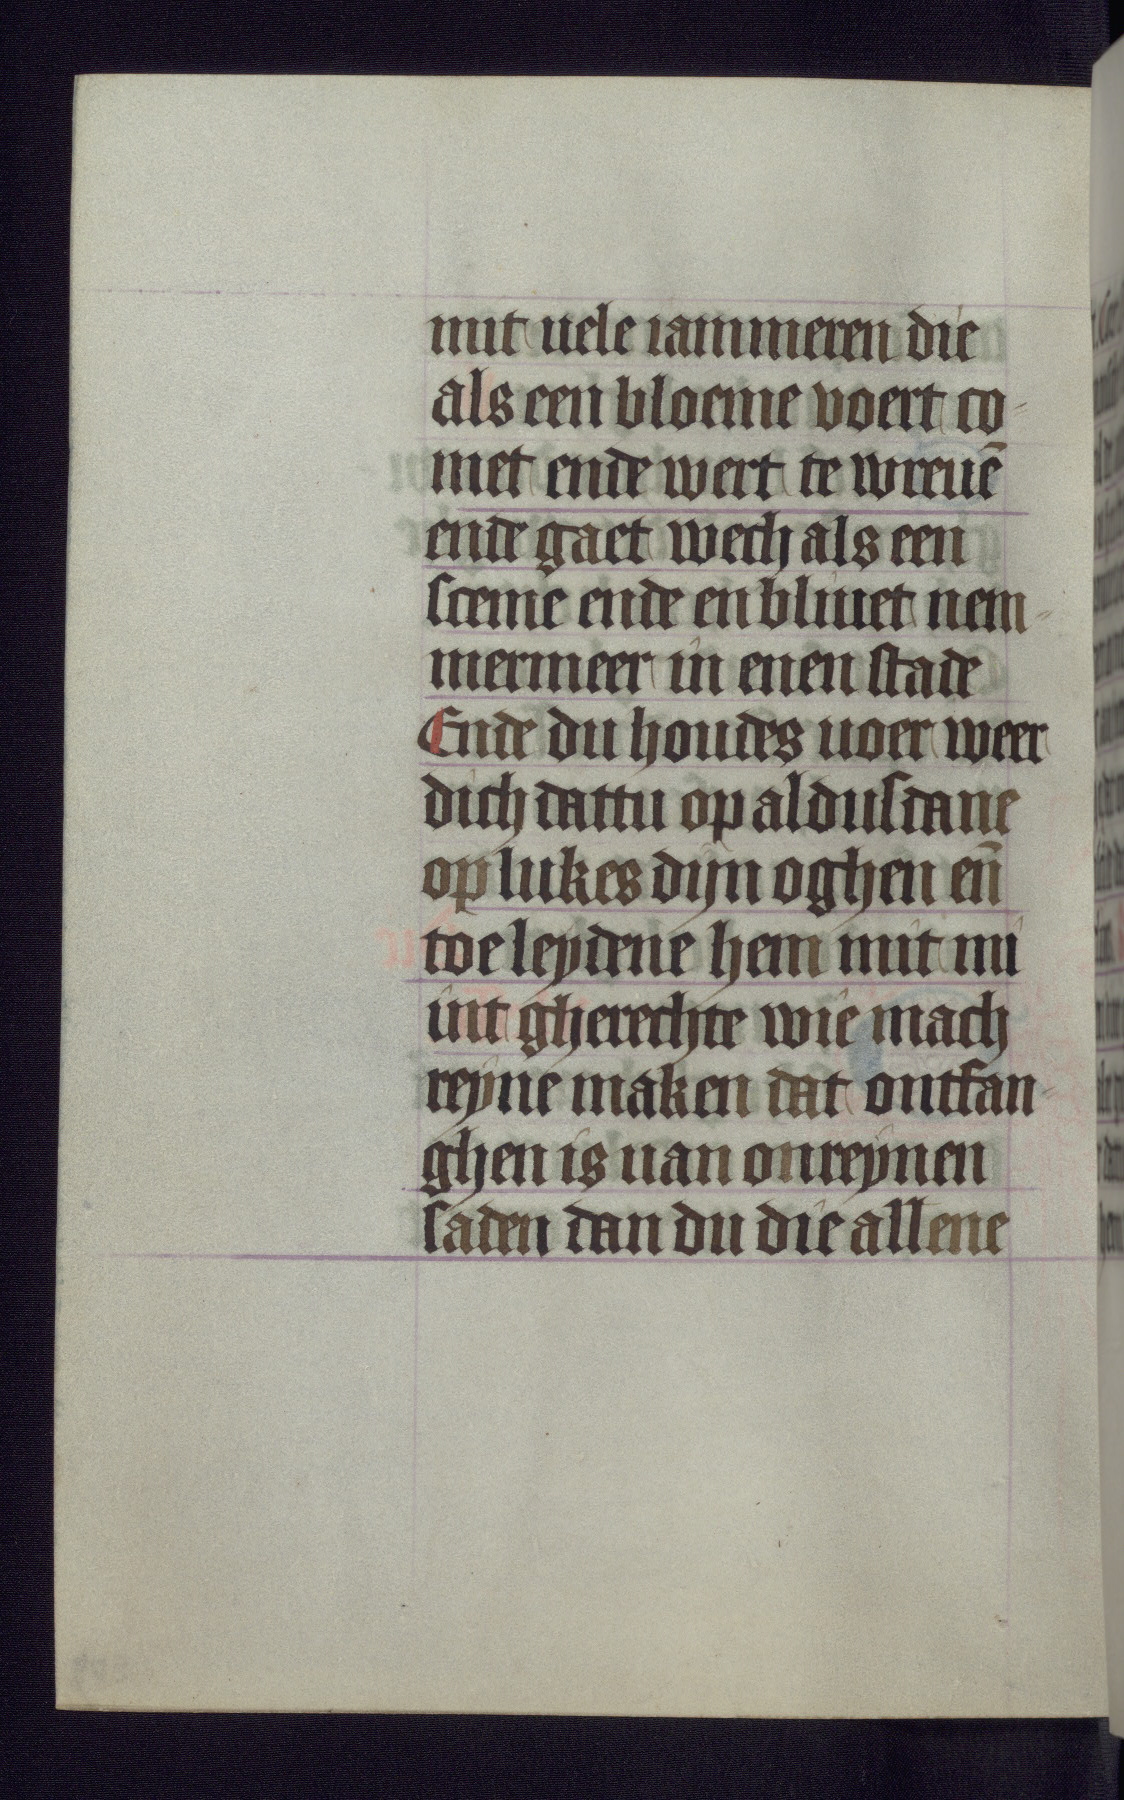 mit uele iammeren die
als een bloeme voert co-
met ende wert te wreuē
ende gaet wech als een
sceme ende en bliuet nem-
mermeer in enen stade
Ende du houdes uoer weer
dich dattu op aldusdane
op lukes dijn oghen eñ
toe leydene hem mit mi
int gherechte wie mach
reyne maken dat ontfan-
ghen is uan onreynen
saden dan du die allene